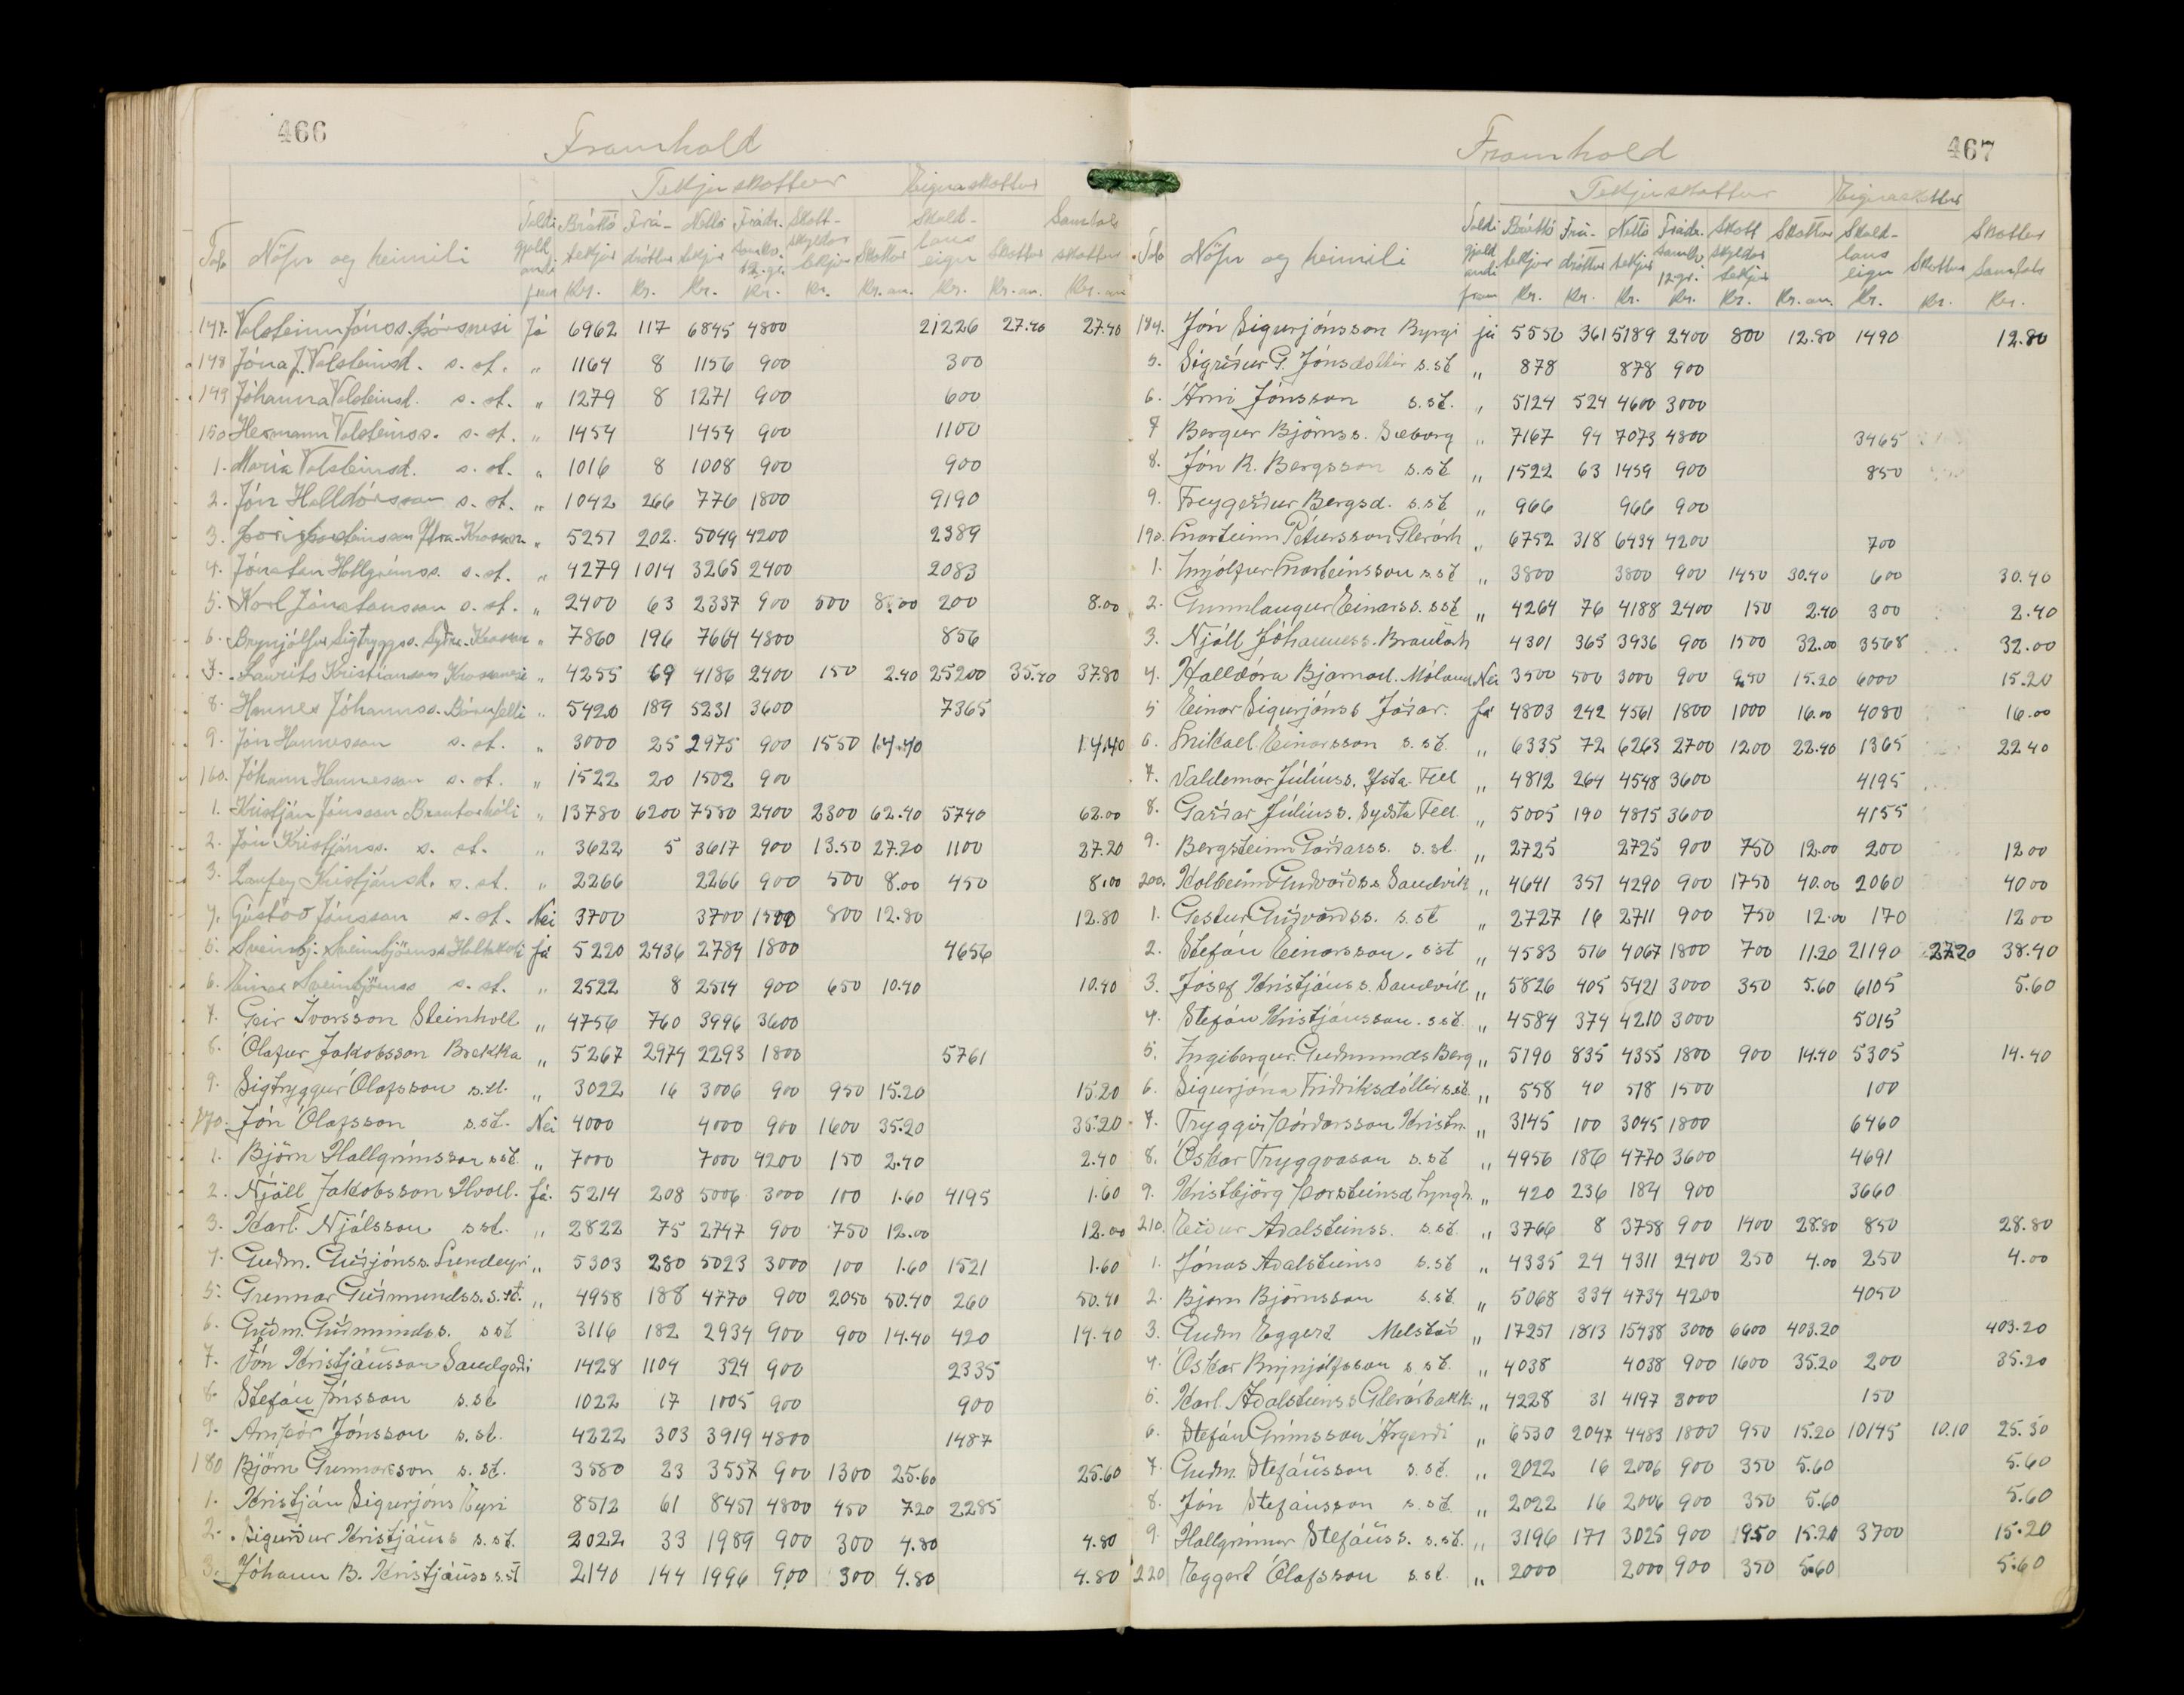 466
Framhald
Tekjuskattur Eignaskattur
Tala Nöfn og heimili Taldi gjaldandi fram Bruttó tekjur Kr. Frá-dráttur Kr. Nettó tekjur Kr. Frádr. samkv. 12. gr. Kr. Skatt-skyldar tekjur Kr. Skattur Kr. au. Skuld-laus eign Kr. Skattur Kr. au. Samtals skattur Kr. au
147. Valsteinn Jónss. Þórsnesi Já 6962 117 6845 4800 21226 27.40 27.40
148 Jóna J. Valsteinsd. s. st. " 1164 8 1156 900 300
149 Jóhanna Valsteinsd. s. st. " 1279 8 1271 900 600
150 Hermann Valsteinss. s. st. " 1454 1454 900 1100
1. María Valsteinsd. s. st. " 1016 8 1008 900 900
2. Jón Halldórsson s. st. " 1042 266 776 1800 9190
3. Þorsteinsson Ytra-Krossan. " 5251 202. 5049 4200 2389
4. Jónatan Hallgrímss. s. st. " 4279 1014 3265 2400 2083
5. Karl Jónatansson s. st. " 2400 63 2337 900 500 8.00 200 8.00
6. Brynjólfur Sigtryggss. Syðra-Krossan " 7860 196 7664 4800 856
7. Laurits Kristiansen Krossanesi " 4255 69 4186 2400 150 2.40 25200 35.40 37.80
8. Hannes Jóhannss. Bárufelli " 5420 189 5231 3600 7365
9. Jón Hannesson s. st. " 3000 25 2975 900 1550 14.40 14.40
160. Jóhann Hannesson s. st. " 1522 20 1502 900
1. Kristján Jónsson Brautarhóli " 13780 6200 7580 2400 2300 62.40 5740 62.00
2. Jón Kristjánss. s. st. " 3622 5 3617 900 13.50 27.20 1100 27.20
3. Laufey Kristjánsd. s. st. " 2266 2266 900 500 8.00 450 8.00
4. Gústav Jónsson s. st. Nei 3700 3700 1500 800 12.80 12.80
5. Sveinbj. Sveinbjörnss Hlíðskoti Já 5220 2436 2784 1800 4656
6. Einar Sveinbjörnss s. st. " 2522 8 2514 900 650 10.40 10.40
7. Geir Ívarsson Steinholt " 4756 760 3996 3600
8. Ólafur Jakobsson Brekka " 5267 2974 2293 1800 5761
9. Sigtryggur Ólafsson s.st. " 3022 16 3006 900 950 15.20 15.20
170. Jón Ólafsson s.st. Nei 4000 4000 900 1600 35.20 35.20
1. Björn Hallgrímsson s.st. " 7000 7000 4200 150 2.40 2.40
2. Njáll Jakobsson Hvoll. Já. 5214 208 5006 3000 100 1.60 4195 1.60
3. Karl Njálsson s.st. " 2822 75 2747 900 750 12.00 12.00
4. Guðm. Guðjónss. Lundeyri " 5303 280 5023 3000 100 1.60 1521 1.60
5. Gunnar Guðmundss. s. st. " 4958 188 4770 900 2050 50.40 260 50.40
6. Guðm. Guðmundss. s.st 3116 182 2934 900 900 14.40 420 14.40
7. Jón Kristjánsson Sandgerði 1428 1104 324 900 2335
8. Stefán Jónsson s.st 1022 17 1005 900 900
9. Arnþór Jónsson s.st. 4222 303 3919 4800 1487
180 Björn Gunnarsson s. st. 3580 23 3557 900 1300 25.60 25.60
1. Kristján Sigurjóns Eyri 8512 61 8451 4800 450 7.20 2285
2. Sigurður Kristjánss s.st. 2022 33 1989 900 300 4.80 4.80
3. Jóhann B. Kristjánss s.st 2140 144 1996 900 300 4.80 4.80
467
Framhald
Tekjuskattur Eignaskattur
Tala Nöfn og heimili Taldi gjaldandi fram Bruttó tekjur Kr. Frá-dráttur Kr. Nettó tekjur Kr. Frádr. samkv. 12 gr. Kr. Skatt skyldar tekjur Kr. Skattur Kr. au. Skuld-laus eign Kr. Skattur Kr. Skattur Samtals Kr.
184. Jón Sigurjónsson Byrgi já 5550 361 5189 2400 800 12.80 1490 12.80
5. Sigríður G. Jónsdóttir s.st " 878 878 900
6. Árni Jónsson s.st. " 5124 524 4600 3000
7 Bergur Björnss. Sæborg " 7167 94 7073 4800 3465
8. Jón R. Bergsson s.st " 1522 63 1459 900 850
9. Freygerður Bergsd. s.st " 966 966 900
190. Marteinn Pétursson Glerárh " 6752 318 6434 4200 700
1. Ingólfur Marteinsson s.st " 3800 3800 900 1450 30.40 600 30.40
2. Gunnlaugur Einarss. s.st " 4264 76 4188 2400 150 2.40 300 2.40
3. Njáll Jóhanness. Brautarh 4301 365 3936 900 1500 32.00 3568 32.00
4. Halldóra Bjarnad. Móland Nei 3500 500 3000 900 950 15.20 6000 15.20
5 Einar Sigurjónss Jaðar. Já 4803 242 4561 1800 1000 16.00 4080 16.00
6. Mikael Einarsson s.st. " 6335 72 6263 2700 1200 22.40 1365 22 40
7. Valdemar Júlíuss. Ysta-Fell " 4812 264 4548 3600 4195
8. Garðar Júlíuss. Syðsta Fell " 5005 190 4815 3600 4155
9. Bergsteinn Garðarss. s.st. " 2725 2725 900 750 12.00 200 12 00
200. Kolbeinn Guðvarðss Sandvík " 4641 351 4290 900 1750 40.00 2060 40 00
1. Gestur Guðvarðss. s.st " 2727 16 2711 900 750 12.00 170 12 00
2. Stefán Einarsson. s.st " 4583 516 4067 1800 700 11.20 21190 27.20 38.40
3. Jósef Kristjánss. Sandvík " 5826 405 5421 3000 350 5.60 6105 5.60
4. Stefán Kristjánsson. s.st. " 4584 374 4210 3000 5015
5. Ingibergur. Guðmunds Berg " 5190 835 4355 1800 900 14.40 5305 14.40
6. Sigurjóna Friðriksdóttir s.st. " 558 40 518 1500 100
7. Tryggvi Þórðarsson Kristn. " 3145 100 3045 1800 6460
8. Óskar Tryggvason s.st " 4956 186 4770 3600 4691
9. Kristbjörg Þorsteinsd Lyngh. " 420 236 184 900 3660
210. Eiður Aðalsteinss. s.st. " 3766 8 3758 900 1400 28.80 850 28.80
1. Jónas Aðalsteinss s.st " 4335 24 4311 2400 250 4.00 250 4.00
2. Björn Björnsson s.st. " 5068 334 4734 4200 4050
3. Guðm Eggerz Melstað " 17251 1813 15438 3000 6600 403.20 403.20
4. Óskar Brynjólfsson s st. " 4038 4038 900 1600 35.20 200 35.20
5. Karl Aðalsteinss Glerárbakki " 4228 31 4197 3000 150
6. Stefán Grímsson Árgerði " 6530 2047 4483 1800 950 15.20 10145 10.10 25.30
7. Guðm. Stefánsson s.st. " 2022 16 2006 900 350 5.60 5.60
8. Jón Stefánsson s.st. " 2022 16 2006 900 350 5.60 5.60
9. Hallgrímur Stefánss. s.st. " 3196 171 3025 900 1950 15.20 3700 15.20
220 Eggert Ólafsson s.st. " 2000 2000 900 350 5.60 5.60